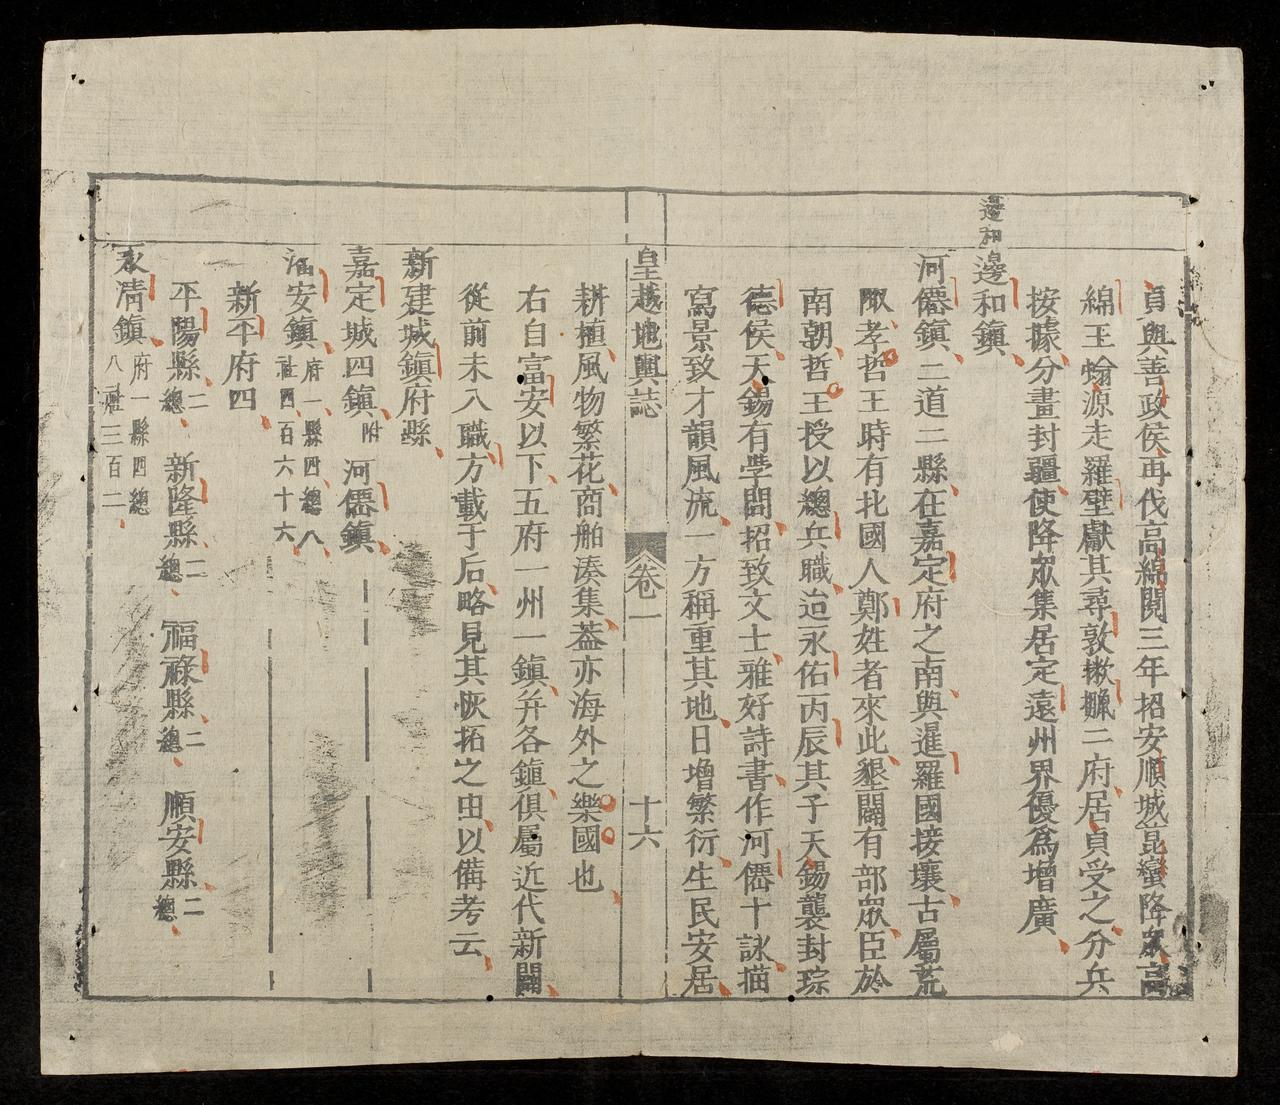 貞與善政侯再伐高綿閱三年招安順城崑蠻降衆高
綿王螉源走羅壁獻其尋敦𢠿𤢪二府居貞受之分兵
按據分畫封疆使降衆集居定遠州界優爲增廣
邊和
邊和鎮
河僊鎮二道二縣在嘉定府之南與暹羅國接壤古屬荒
陬孝哲王時有北國人鄭姓者來此墾闢有部衆臣於
南朝哲王授以總兵職迨永佑丙辰其子天錫襲封琮
德侯天錫有學問招致文士雅好詩書作河僊十詠描
寫景致才韻風流一方稱重其地日增繁衍生民安居
皇越地輿誌
卷一
十六
耕植風物繁花商舶湊集葢亦海外之樂國也
右自富安以下五府一州一鎮并各鎮俱屬近代新闢
從前未入職方載于后略見其恢拓之由以備考云
新建城鎮府縣
嘉定城四鎮附 河僊鎮
潘安鎮府一縣四總八社四百六十六
新平府四
平陽縣二總 新隆縣二總 福祿縣二總 順安縣二總
永清鎮府一縣四總八社三百二